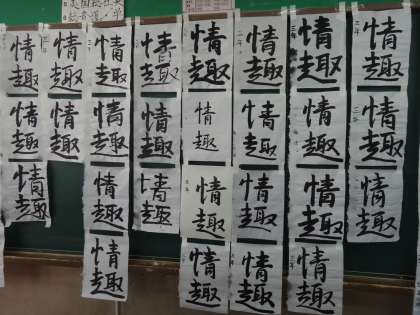 情趣
情趣
情趣
情趣
情趣
情趣
情趣
情趣
情趣
情趣
情趣
情趣
情趣
情趣
情趣
情趣
情趣
情趣
情趣
情趣
情趣
情趣
情趣
情趣
情趣
情趣
情趣